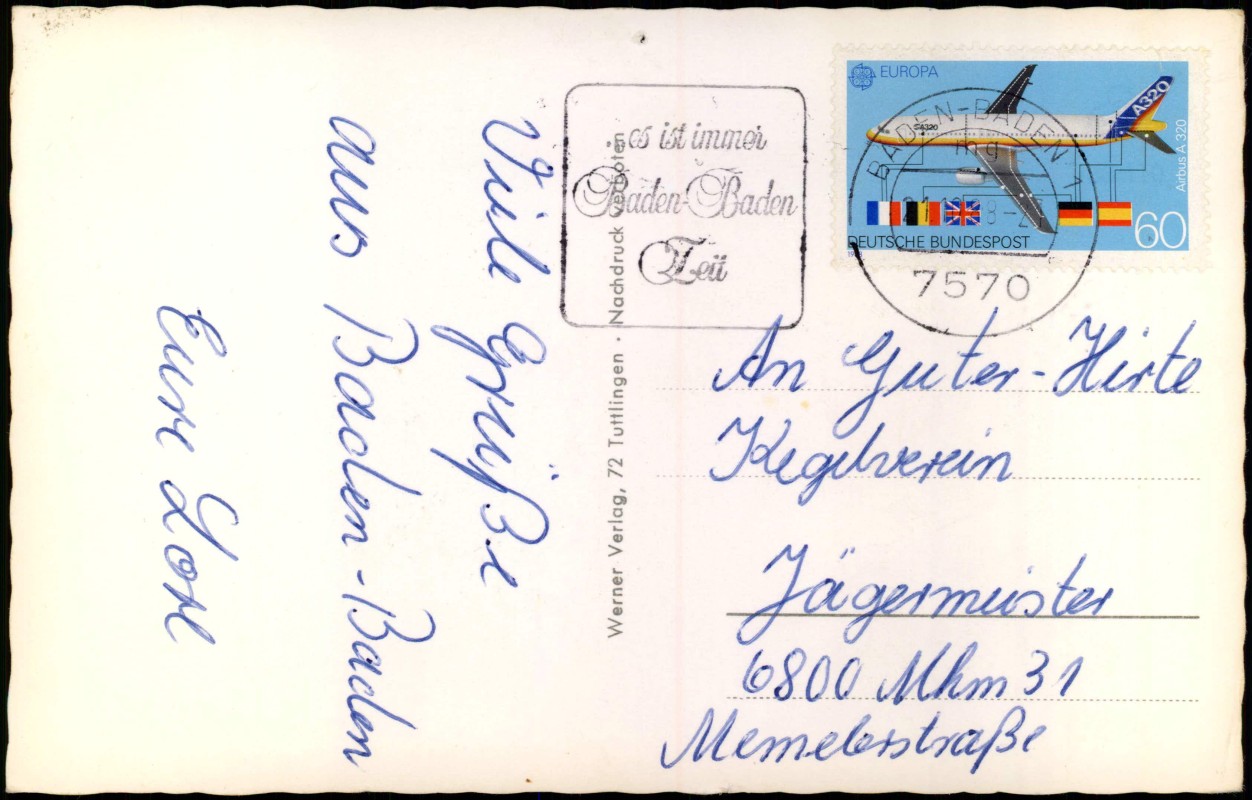 Viele Grüße
aus Baden-Baden
Eure Lore
Werner Verlag, 72 Tuttlingen · Nachdruck verboten
es ist immer
Baden-Baden
Zeit
EUROPA
A320
A320
Airbus A 320
DEUTSCHE BUNDESPOST
60
BADEN-BADEN 1
mg
7570
An Guter-Hirte
Kegelverein
Jägermeister
6800 Mhm 31
Memelerstraße